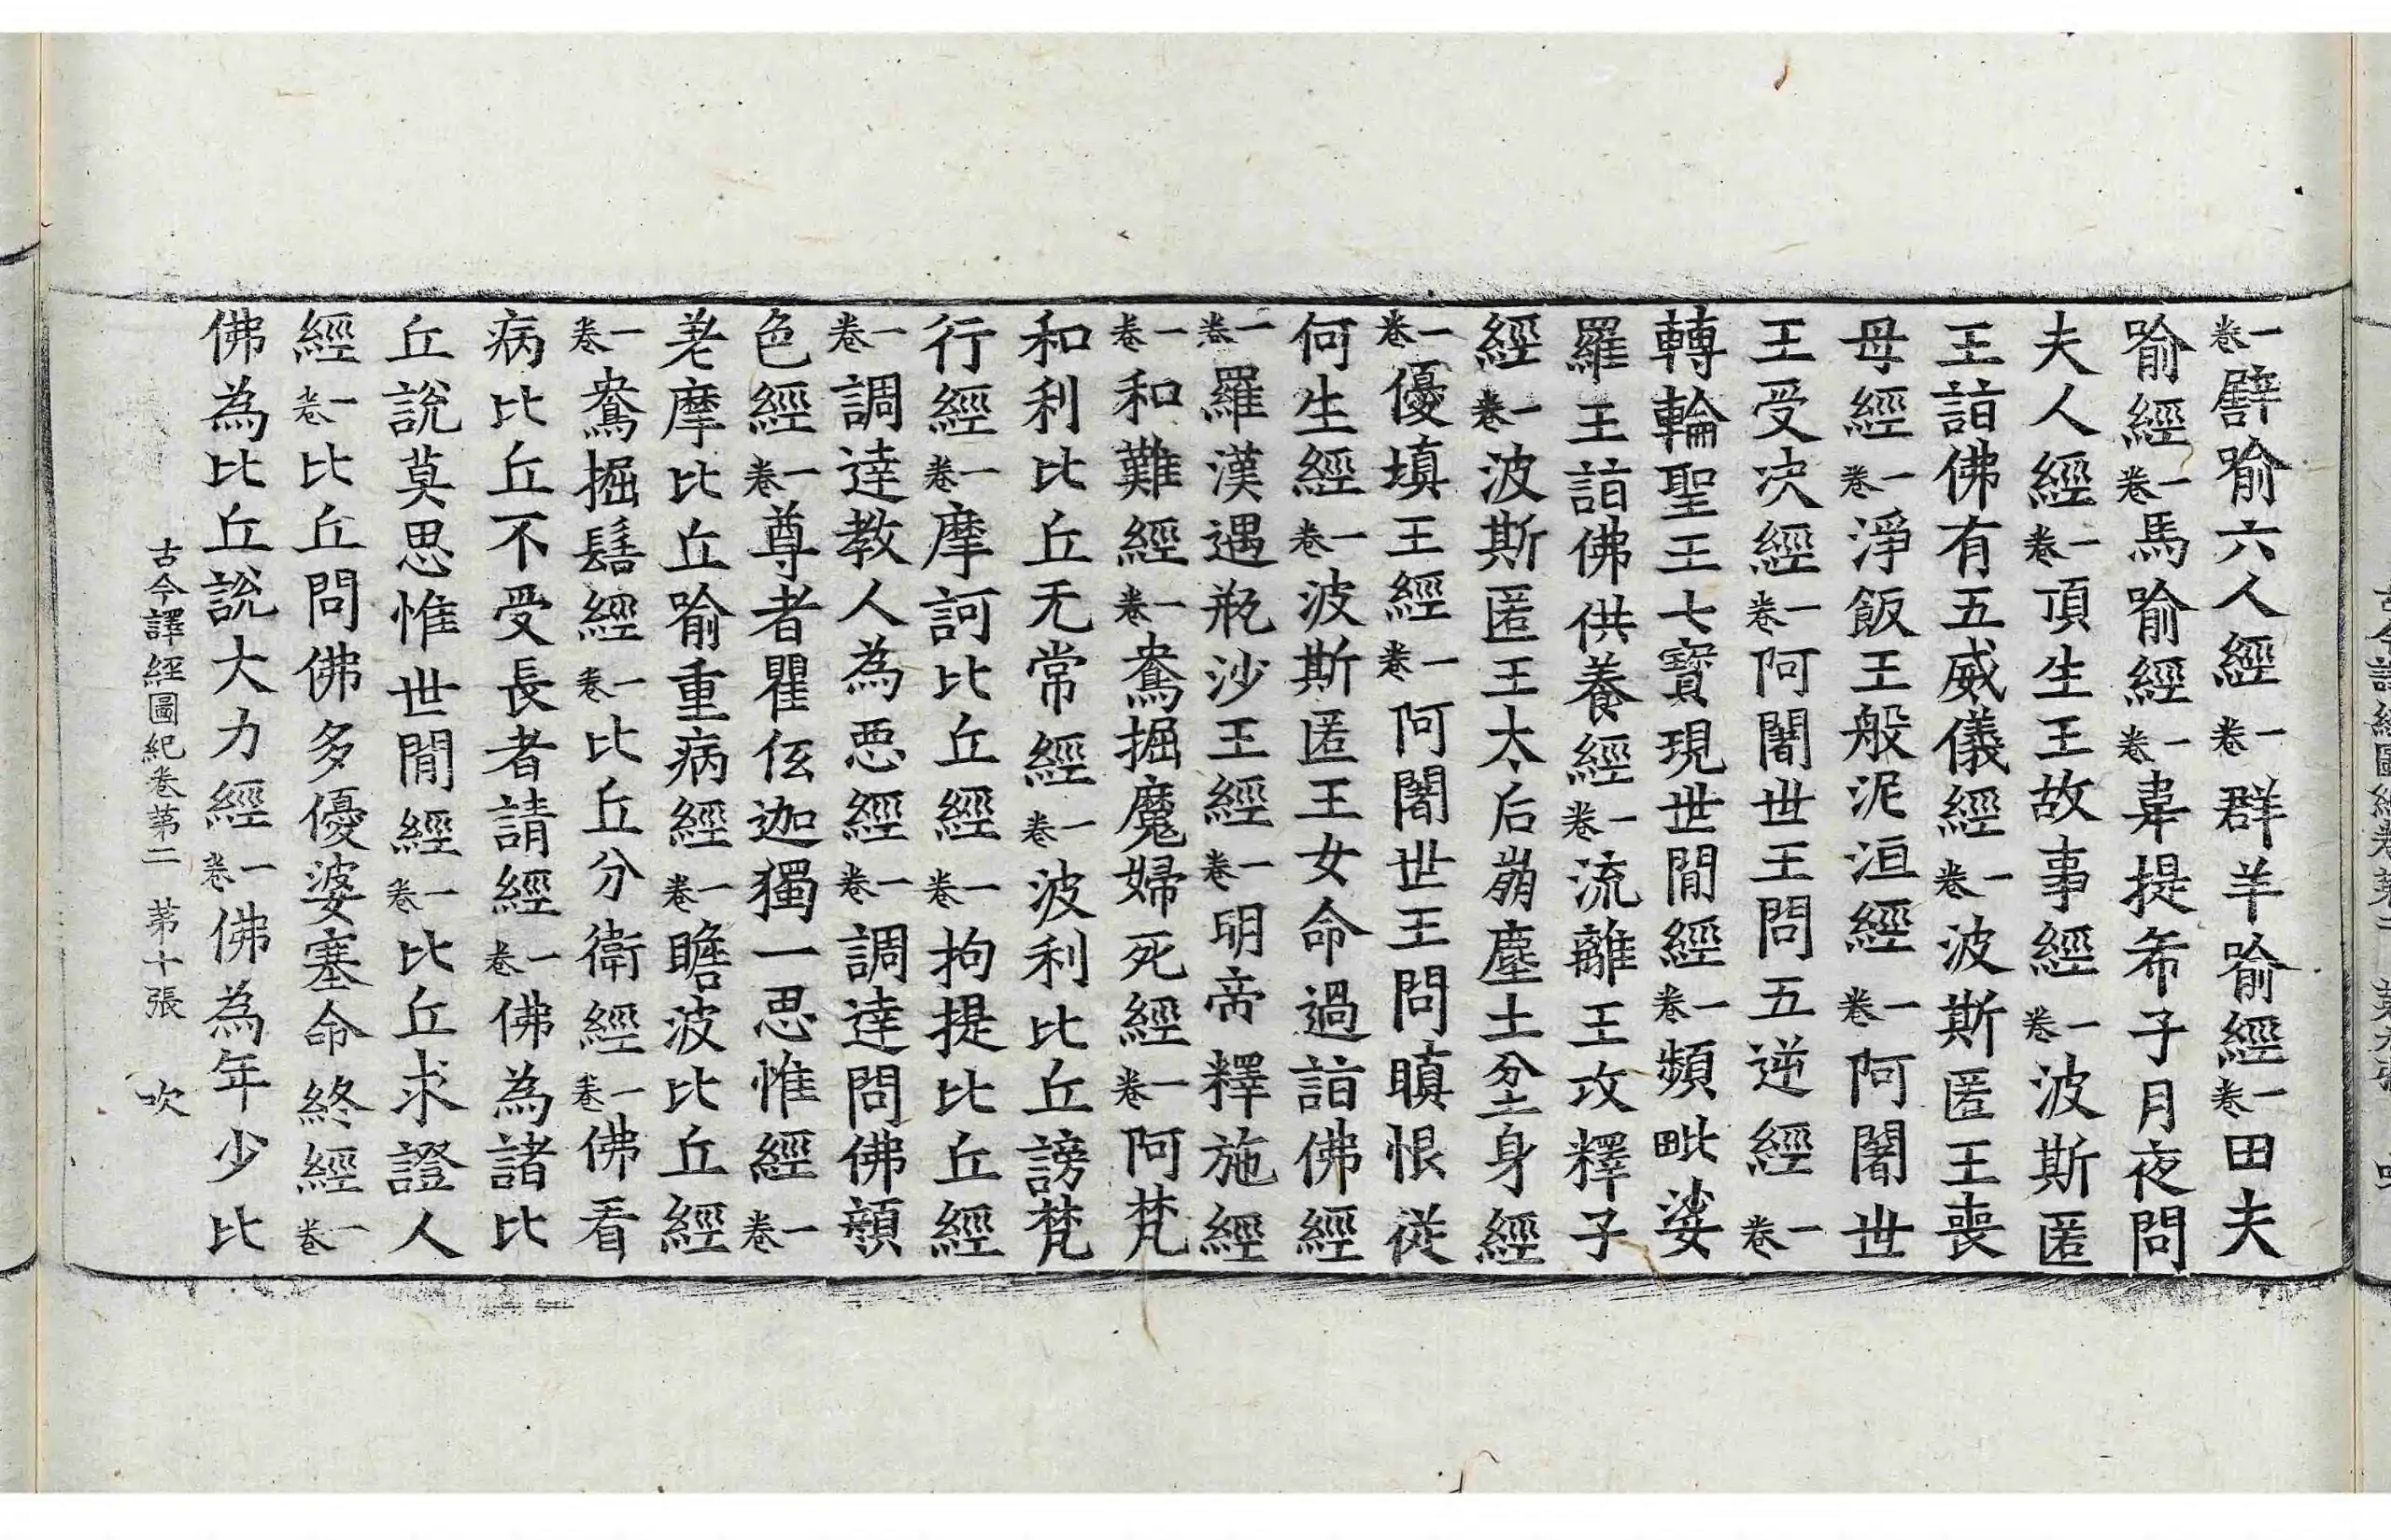 一卷譬喻六人經一卷群羊喻經一卷田夫
喻經一卷馬喻經一卷韋提希子月夜問
夫人經一卷頂生王故事經一卷波斯匿
王詣佛有五威儀經一卷波斯匿王喪
母經一卷淨飯王般泥洹經一卷阿闍世
王受决經一卷阿闍世王問五逆經一卷
轉輪聖王七寶現世閒經一卷頻毗娑
羅王詣佛供養經一卷流離王攻釋子
經一卷波斯匿王太后崩塵土坌身經
一卷優填王經一卷阿闍世王問瞋恨從
何生經一卷波斯匿王女命過詣佛經
一卷羅漢遇瓶沙王經一卷明帝釋施經
一卷和難經一卷鴦掘魔婦死經一卷阿梵
和利比丘无常經一卷波利比丘謗梵
行經一卷摩訶比丘經一卷拘提比丘經
一卷調達教人為惡經一卷調達問佛顏
色經一卷尊者瞿伭迦獨一思惟經一卷
羌摩比丘喻重病經一卷瞻波比丘經
一卷鴦掘髻經一卷比丘分衛經一卷佛看
病比丘不受長者請經一卷佛為諸比
丘說莫思惟世閒經一卷比丘求證人
經一卷比丘問佛多優婆塞命終經一卷
佛為比丘說大力經一卷佛為年少比
古今譯經圖紀卷第二 第十張 吹